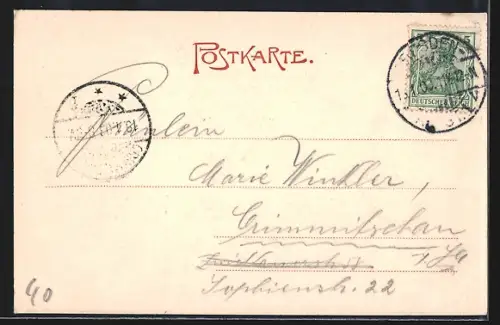 POSTKARTE.
5
DEUTSCHES
Fräulein
Marie Winkler,
Crimmitschau
i/Sa
Sophienstr. 22
40